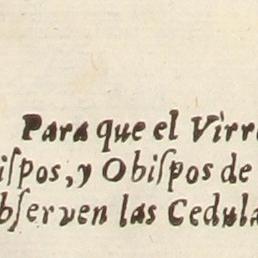 Para que el Virr
iſpos, y Obiſpos de
bſerven las Cedula